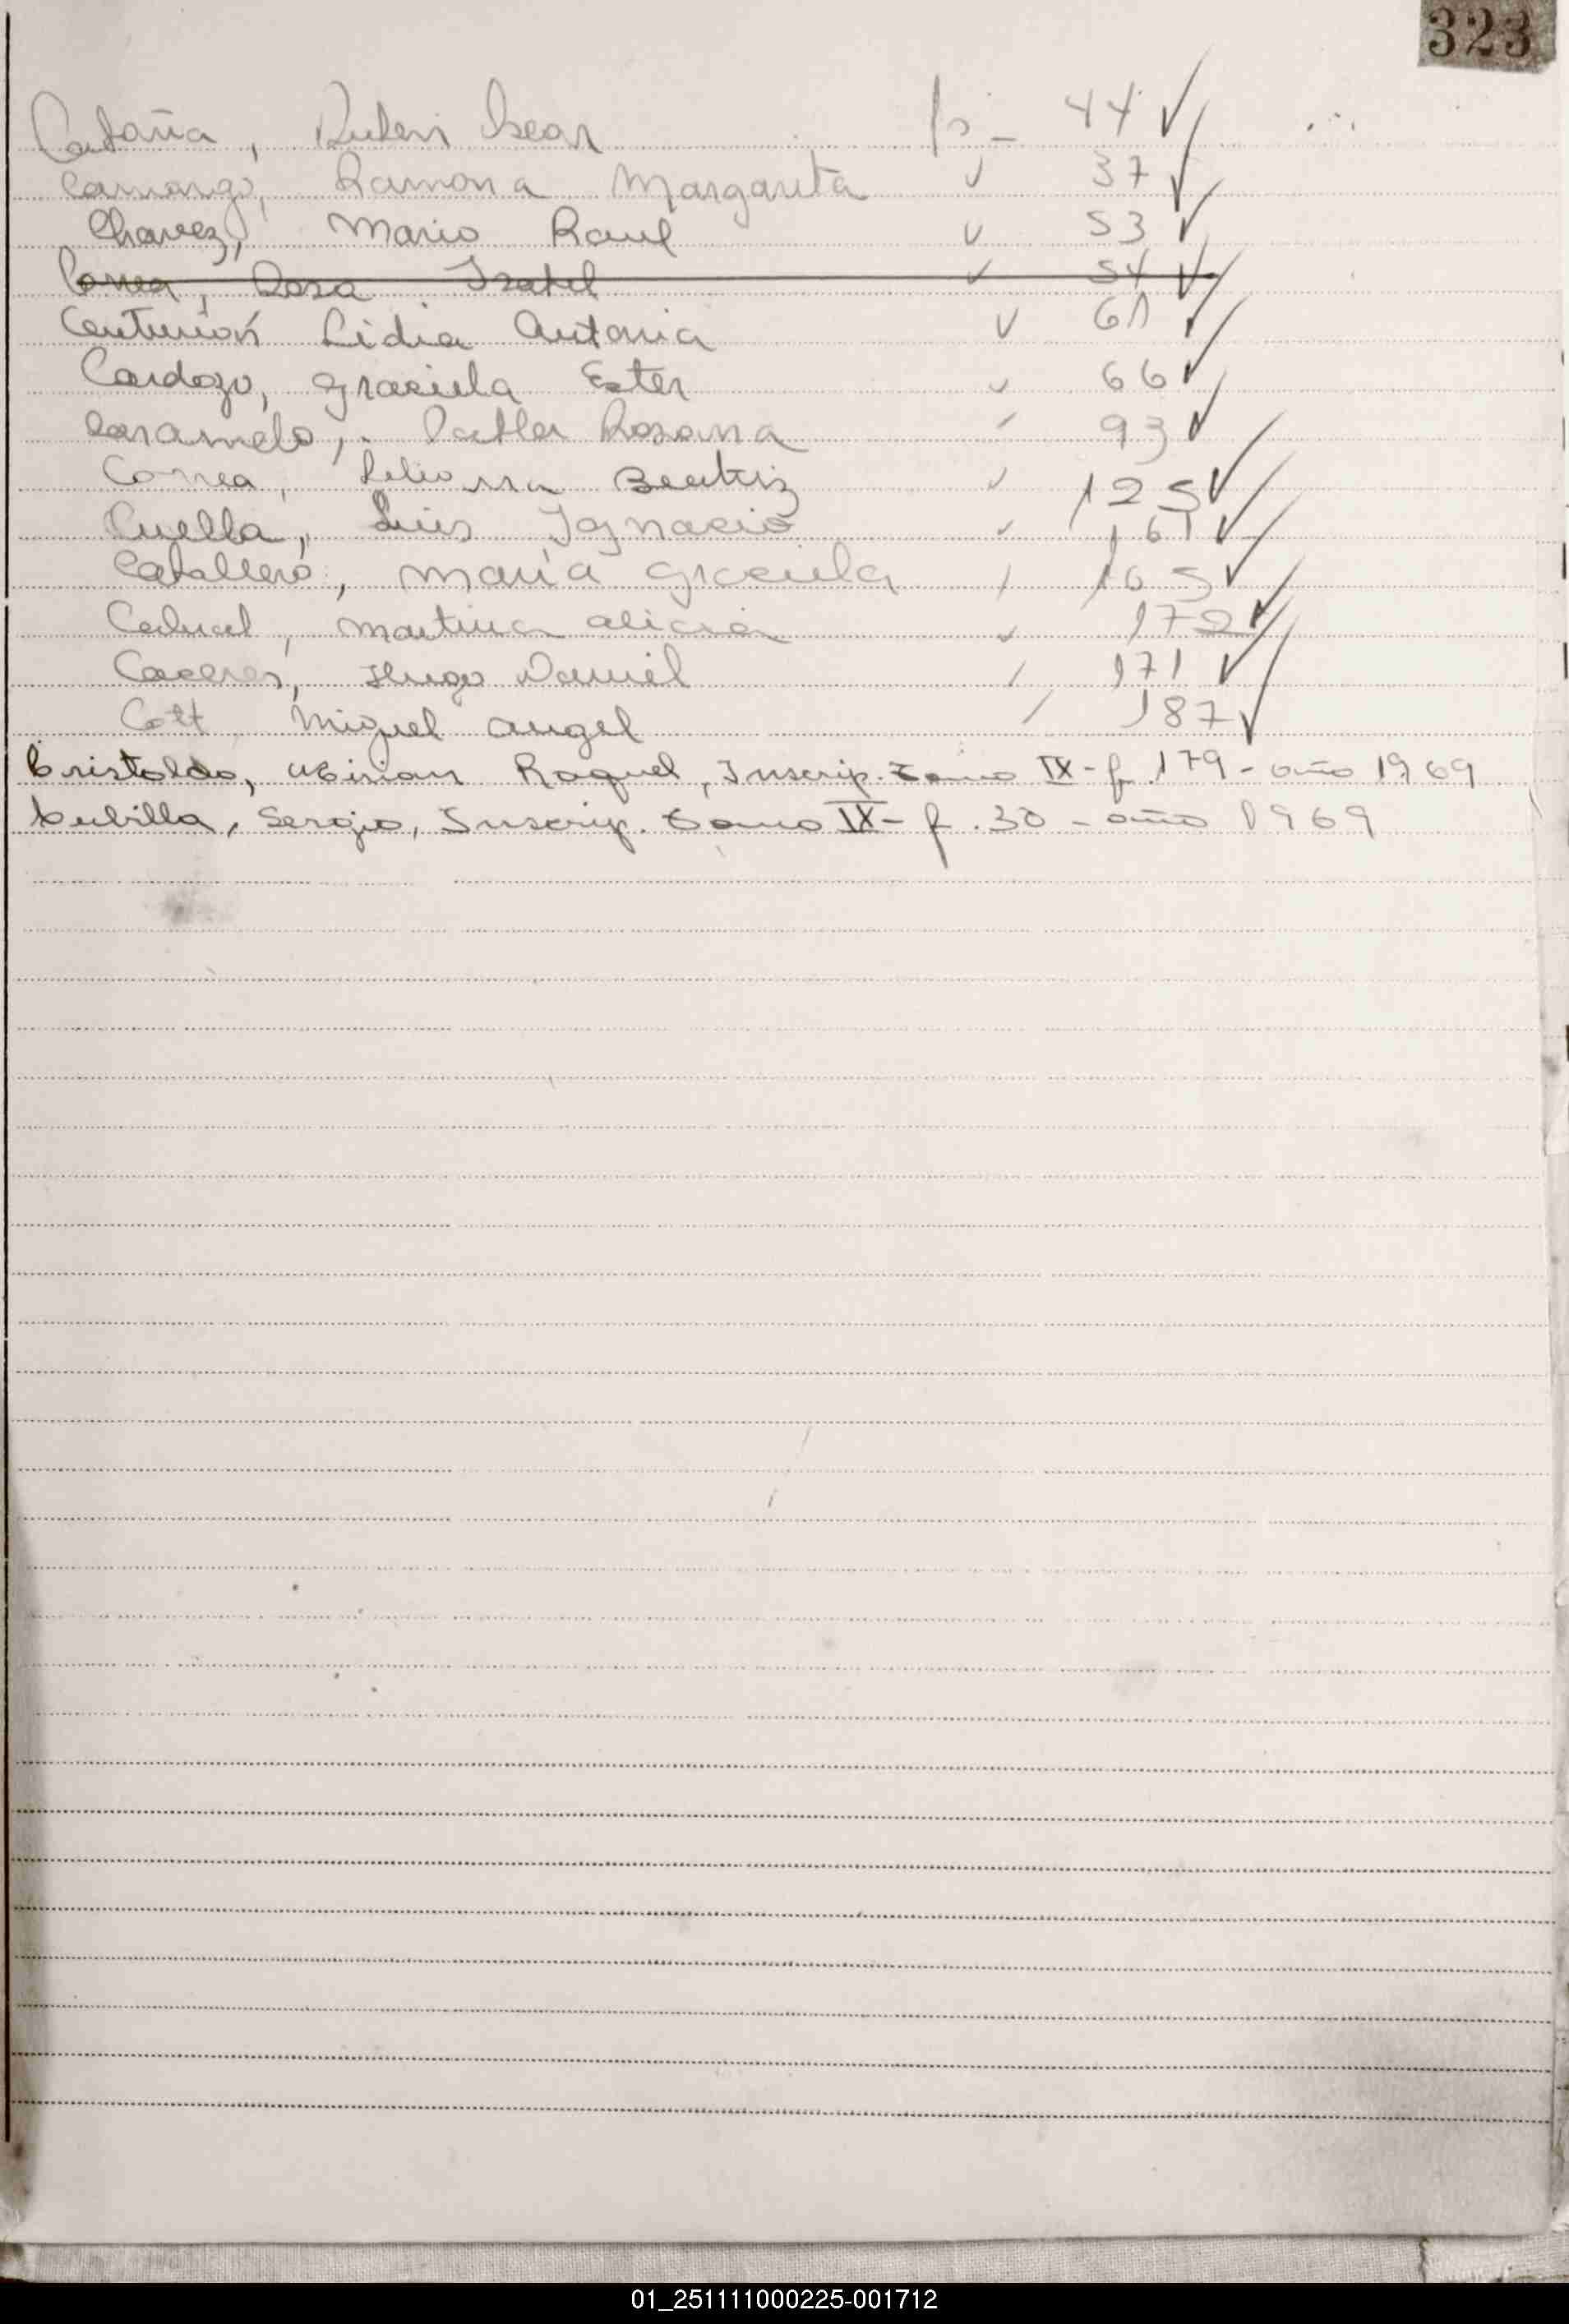 323
Cataña, Ruben Oscar fs - 44 ✓
Camargo, Ramona Margarita ✓ 37 ✓
Chavez, Mario Raul ✓ 53 ✓
Correa, Rosa Isabel ✓ 54 ✓
Centurión Lidia Antonia ✓ 61 ✓
Cardozo, Graciela Ester ✓ 66 ✓
Caramelo, Rosana ✓ 93 ✓
Correa, Liliana Beatriz ✓ 125 ✓
Cuella, Luis Ignacio ✓ 161 ✓
Caballero, Maria Graciela ✓ 165 ✓
Cabral, Martina Alicia ✓ 172 ✓
Caceres, Hugo Daniel ✓ 171 ✓
Cott Miguel Angel ✓ 187 ✓
Cristaldo, Mirian Raquel, Inscrip. Tomo IX - f. 179 - año 1969
Cubilla, Sergio, Inscrip. Tomo IX - f. 30 - año 1969
01_251111000225-001712